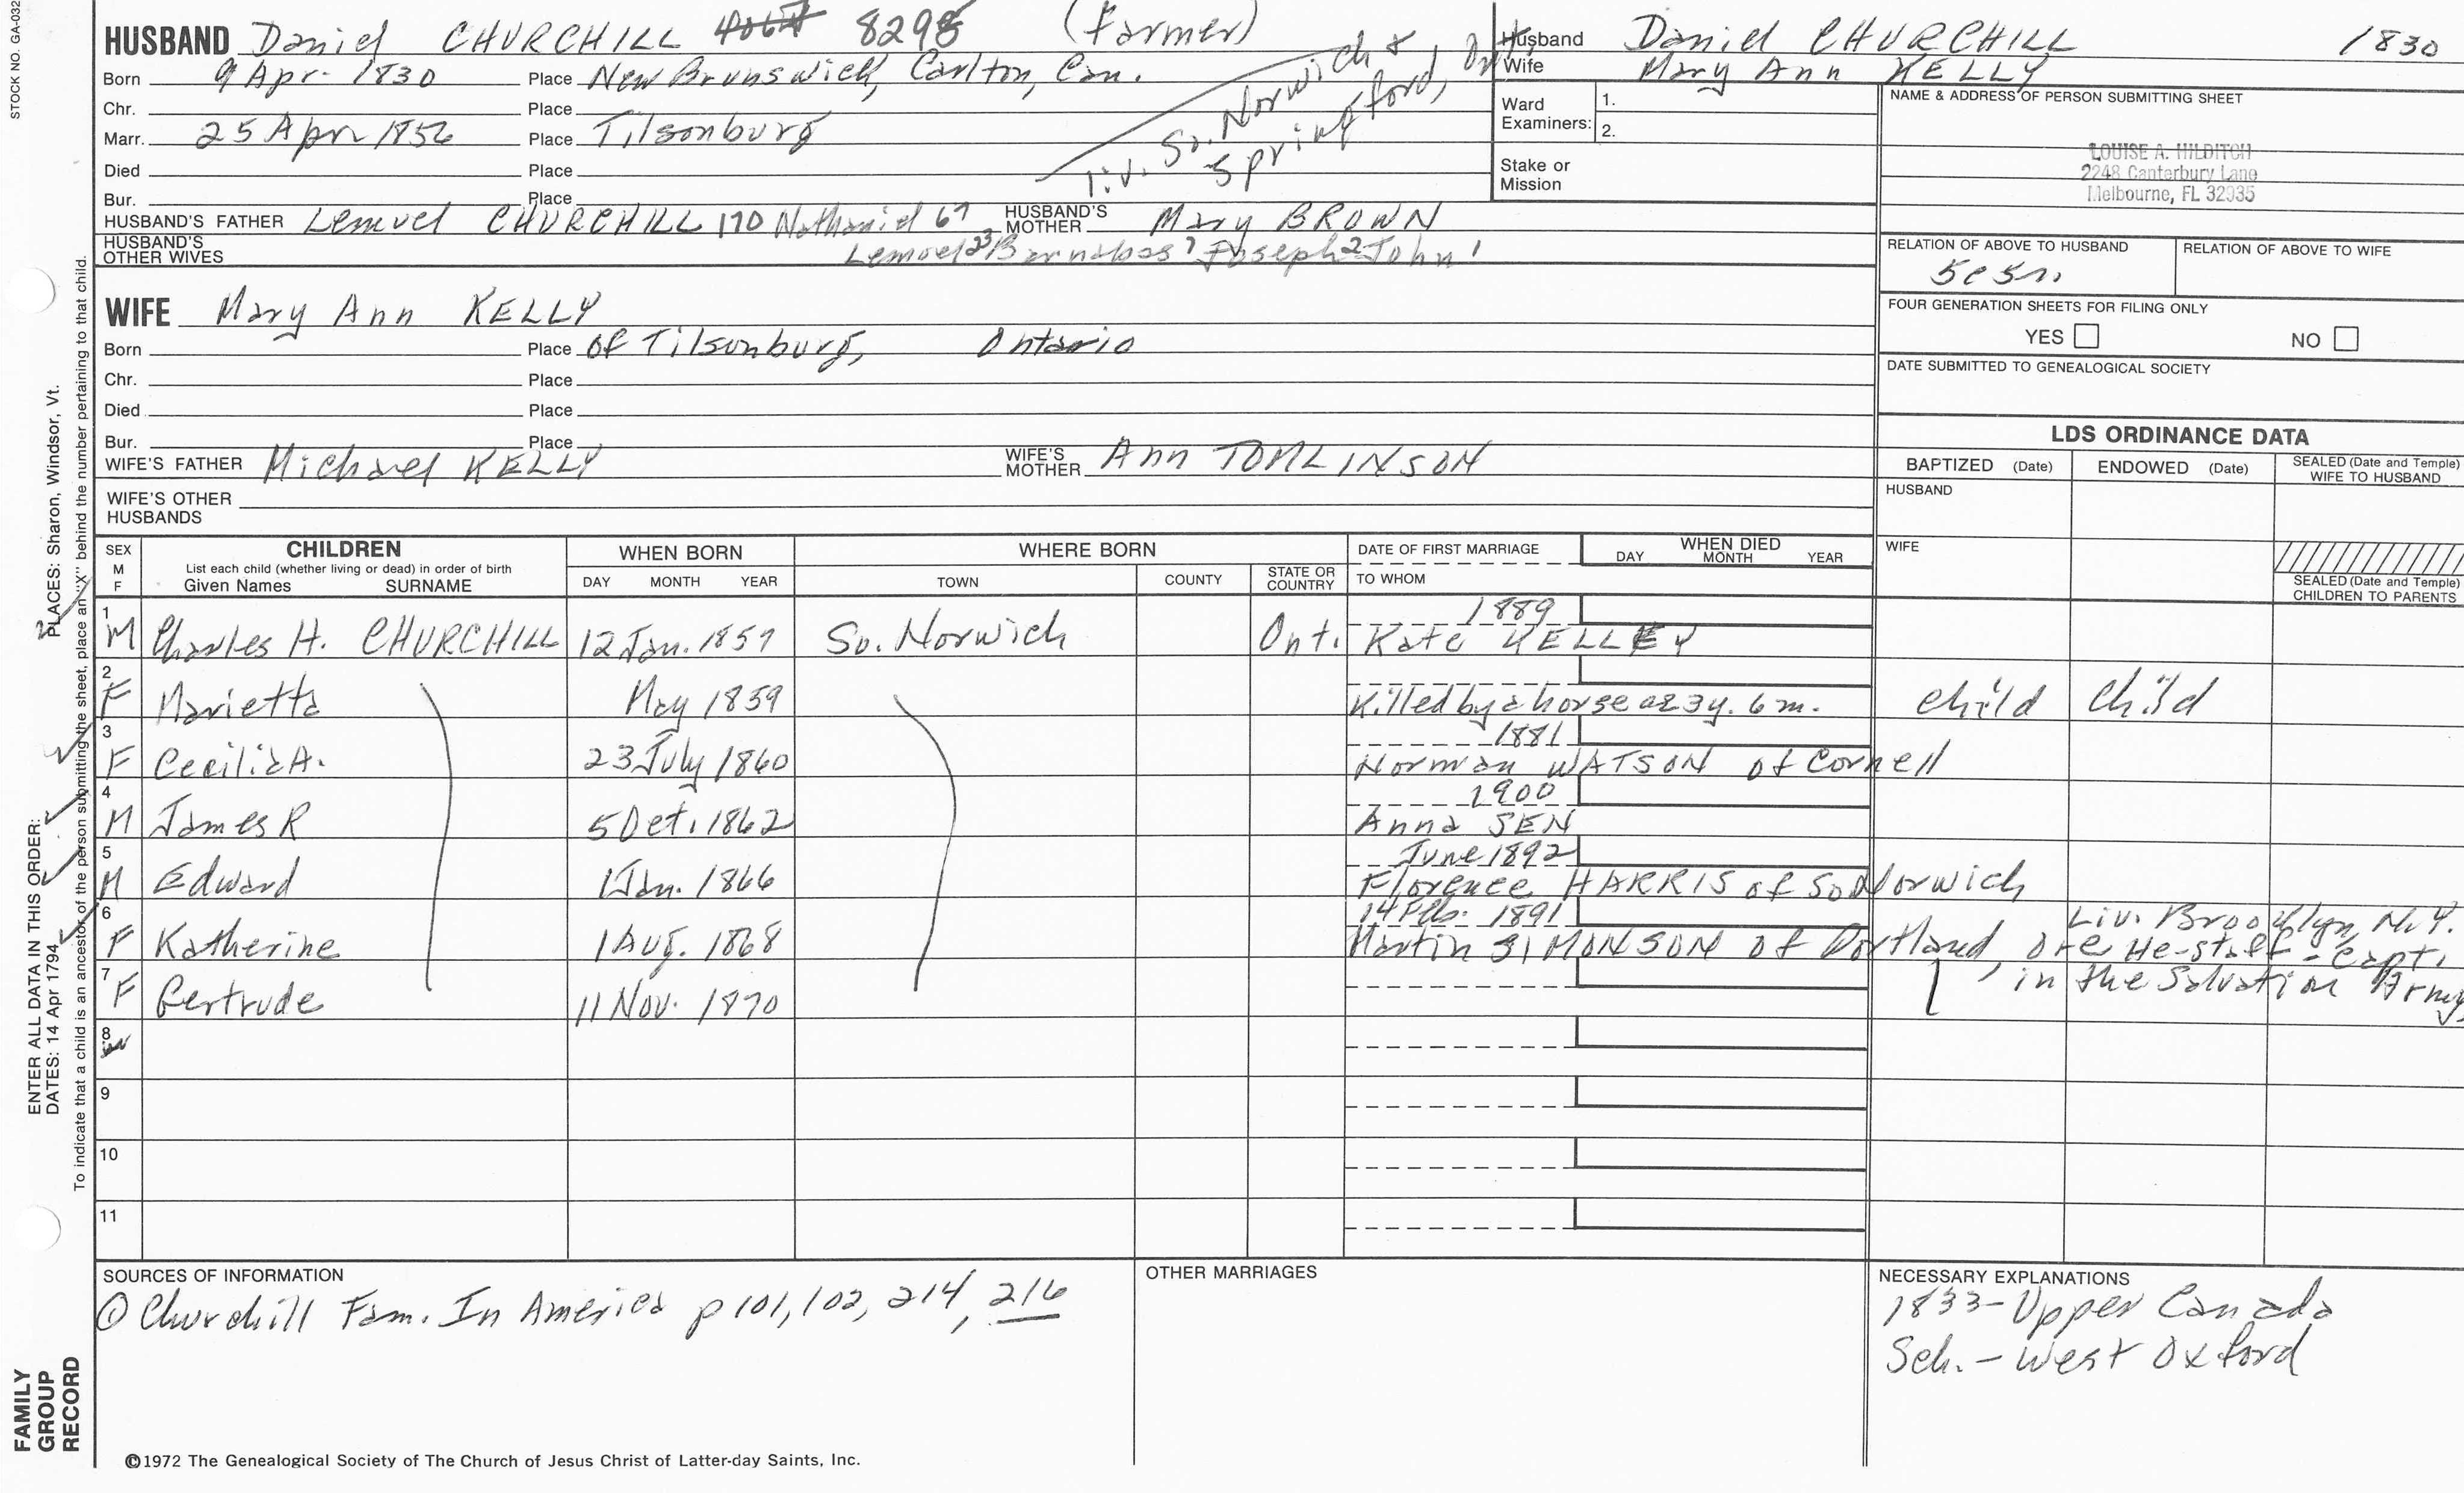 STOCK NO. GA-032
HUSBAND Daniel CHURCHILL 8298 (Farmer)
Born 9 Apr. 1830 Place New Brunswick, Carlton, Can.
Chr. Place
Marr. 25 Apr 1856 Place Tilsonburg
Died Place
Bur. Place
liv. So. Norwich &
Springford, Ont.
HUSBAND'S FATHER Lemuel CHURCHILL 170 Nathaniel 67 HUSBAND'S MOTHER Mary BROWN
HUSBAND'S OTHER WIVES Lemuel 23 Barnabas 7 Joseph 2 John 1
Husband Daniel CHURCHILL 1830
Wife Mary Ann KELLY
Ward Examiners: 1.
2.
Stake or Mission
NAME & ADDRESS OF PERSON SUBMITTING SHEET
LOUISE A. HILDITCH
2248 Canterbury Lane
Melbourne, FL 32935
RELATION OF ABOVE TO HUSBAND RELATION OF ABOVE TO WIFE
5c5r.
FOUR GENERATION SHEETS FOR FILING ONLY
YES NO
DATE SUBMITTED TO GENEALOGICAL SOCIETY
WIFE Mary Ann KELLY
Born Place of Tilsonburg, Ontario
Chr. Place
Died Place
Bur. Place
WIFE'S FATHER Michael KELLY WIFE'S MOTHER Ann TOMLINSON
WIFE'S OTHER HUSBANDS
LDS ORDINANCE DATA
BAPTIZED (Date) ENDOWED (Date) SEALED (Date and Temple) WIFE TO HUSBAND
HUSBAND
WIFE
SEALED (Date and Temple) CHILDREN TO PARENTS
SEX M F CHILDREN List each child (whether living or dead) in order of birth Given Names SURNAME
WHEN BORN DAY MONTH YEAR
WHERE BORN TOWN COUNTY STATE OR COUNTRY
DATE OF FIRST MARRIAGE TO WHOM
WHEN DIED DAY MONTH YEAR
1 M Charles H. CHURCHILL 12 Jan. 1857 So. Norwich Ont. 1889 Kate KELLEY
2 F Marietta May 1859 Killed by a horse ae 3y. 6 m. child child
3 F Cecilia A. 23 July 1860 1881 Norman WATSON of Cornell
4 M James R 5 Oct. 1862 1900 Anna SEN
5 M Edward 1 Jan. 1866 June 1892 Florence HARRIS of So Norwich
6 F Katherine 1 Aug. 1868 14 Feb. 1891 Martin SIMONSON of Portland, Ore
Liv. Brooklyn, N.Y. He-staff-Capt. in the Salvation Army
7 F Gertrude 11 Nov. 1870
8
9
10
11
SOURCES OF INFORMATION
① Churchill Fam. In America p 101, 102, 214, 216
OTHER MARRIAGES
NECESSARY EXPLANATIONS
1833-Upper Canada
Sch. - West Oxford
©1972 The Genealogical Society of The Church of Jesus Christ of Latter-day Saints, Inc.
FAMILY GROUP RECORD
ENTER ALL DATA IN THIS ORDER:
DATES: 14 Apr 1794 PLACES: Sharon, Windsor, Vt.
To indicate that a child is an ancestor of the person submitting the sheet, place an "X" behind the number pertaining to that child.